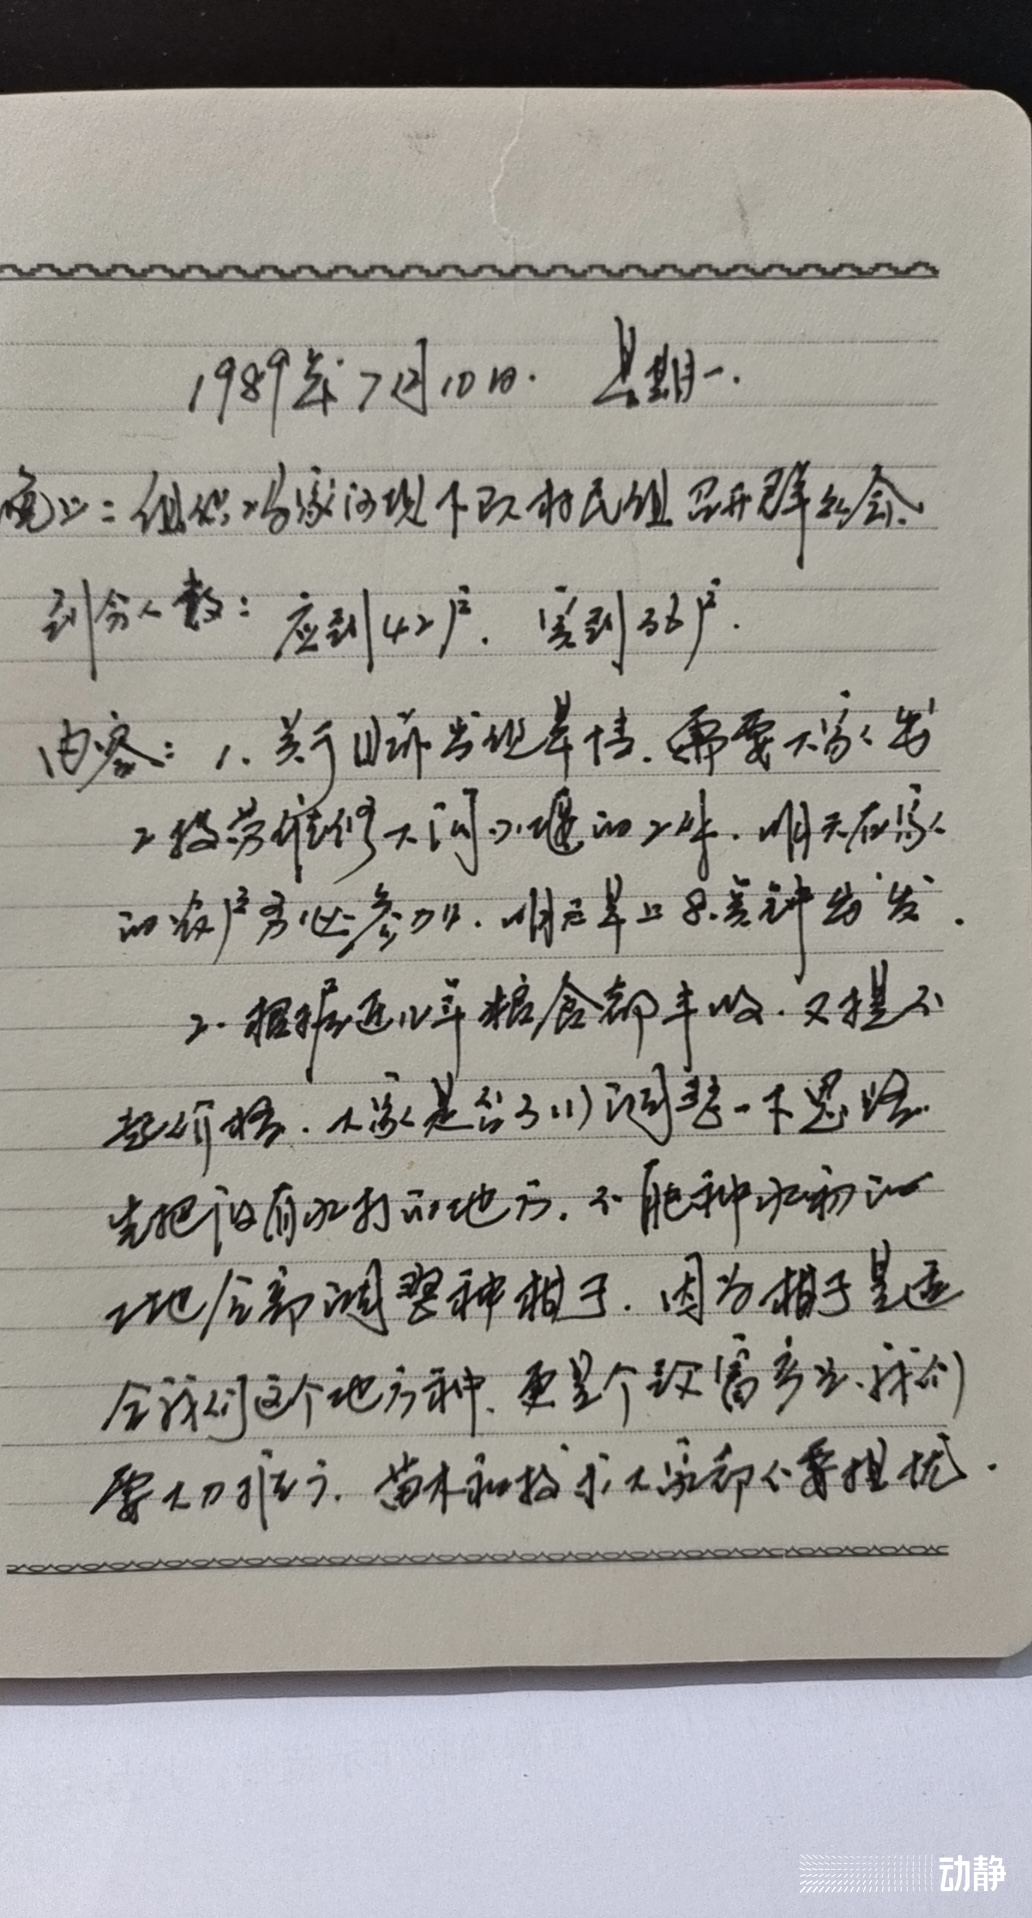 1989年7月10日. 星期一.
晚上:组织冯家河坝下改村民组召开群众会.
到会人数:应到42户.实到36户.
内容:1.关于目前出现旱情.需要大家出
工投劳维修大沟小堰的工作.明天在家
的农户务必参加.明天早上8点钟出发.
2.根据近几年粮食都丰收.又提不
起价格.大家是否可以调整一下思路.
先把没有水打的地方.不能种水稻的
土地全部调整种柑子.因为柑子是适
合我们这个地方种.更是个致富产业.我们
要大力推广.苗木和技术大家都不要担忧.
动静